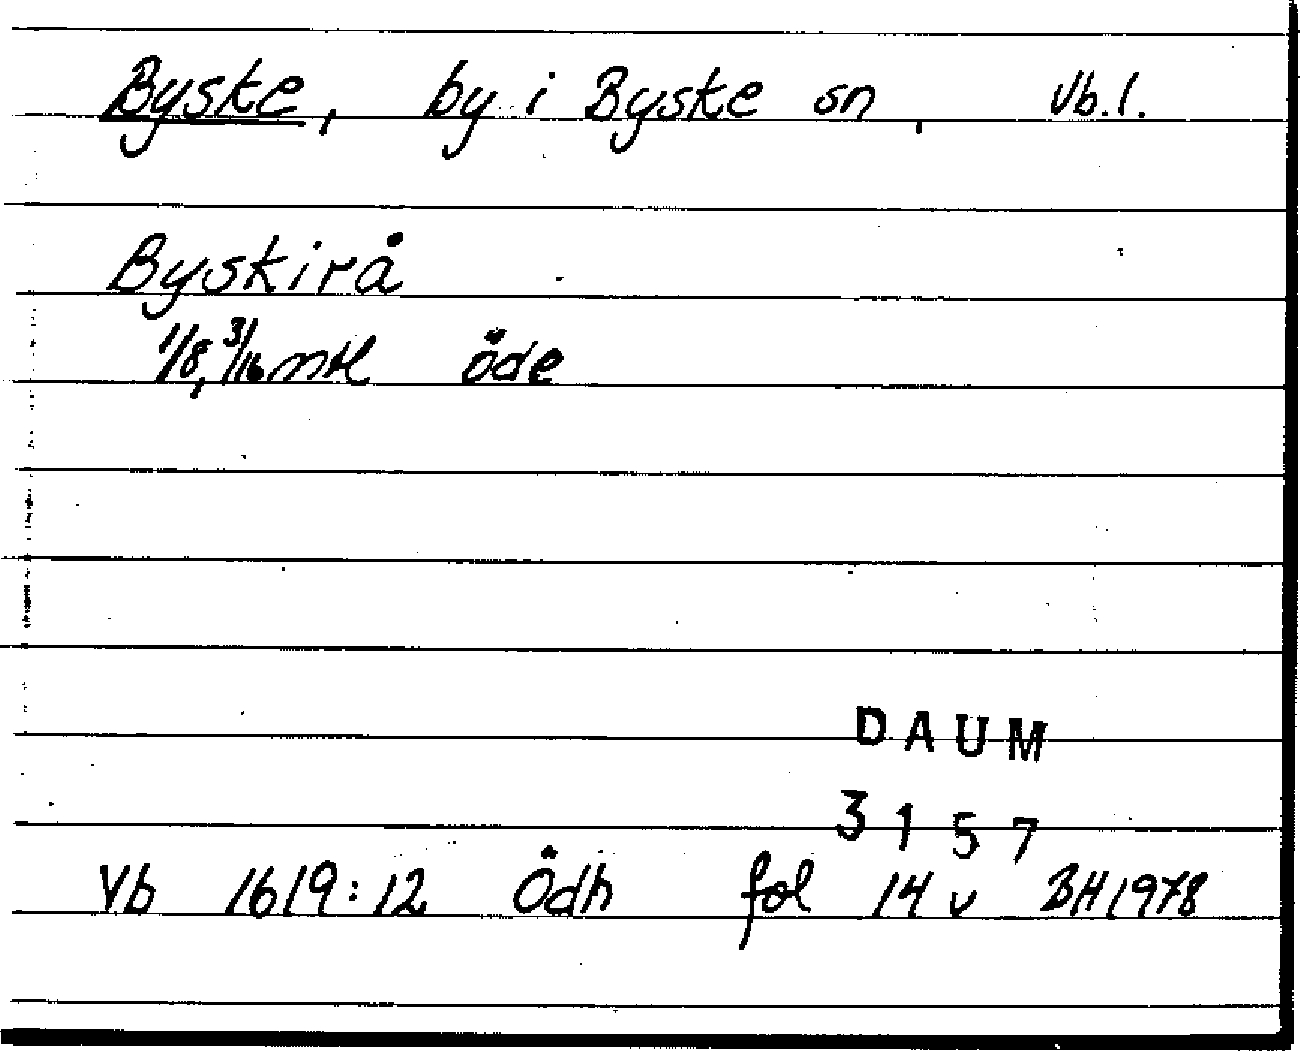 Byske, by i Byske sn, Vb.l.
Byskirå
1/8, 3/16 mtl öde
DAUM
3157
Vb 1619:12 Ödh fol 14 v BH 1978